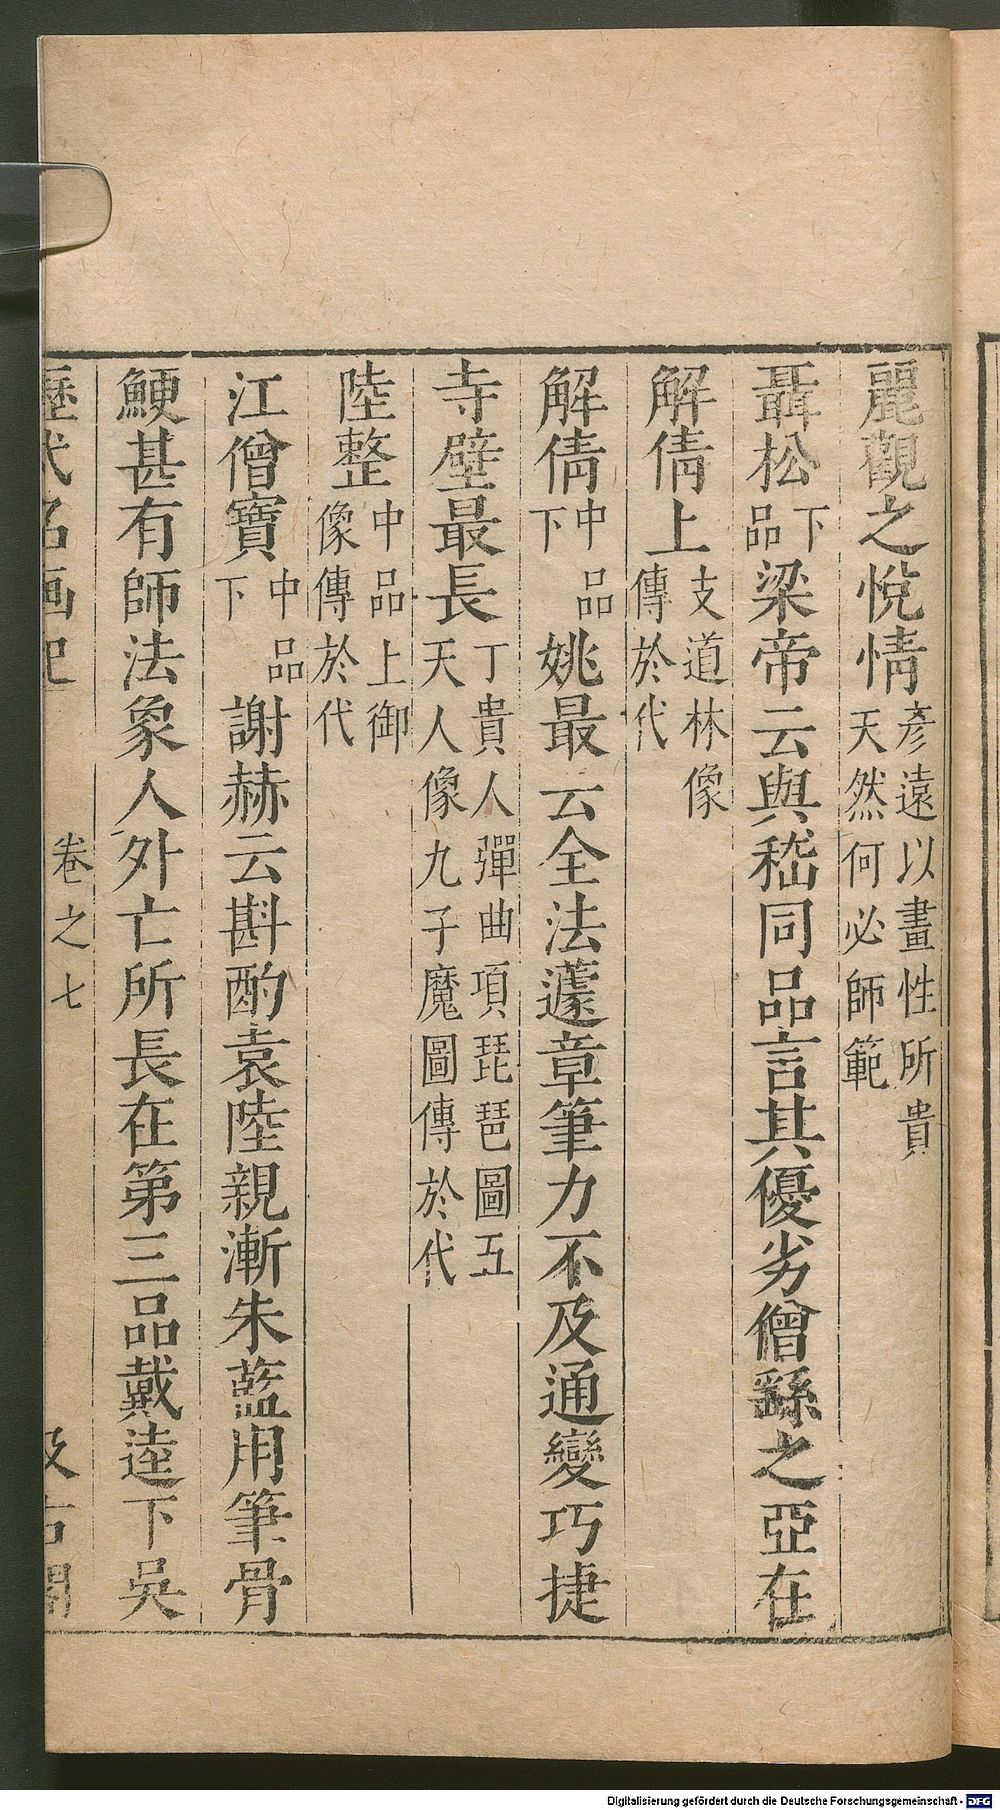 麗觀之悅情彥遠以畫性所貴天然何必師範
聶松下品梁帝云與嵇同品言其優劣僧繇之亞在
解倩上支道林像傳於代
解倩中品下姚最云全法蘧章筆力不及通變巧捷
寺壁最長丁貴人彈曲項琵琶圖五天人像九子魔圖傳於代
陸整中品上御像傳於代
江僧寶中品下謝赫云斟酌袁陸親漸朱藍用筆骨
鯁甚有師法象人外亡所長在第三品戴逵下吳
歷代名画記 卷之七 汲古閣
Digitalisierung gefördert durch die Deutsche Forschungsgemeinschaft - DFG